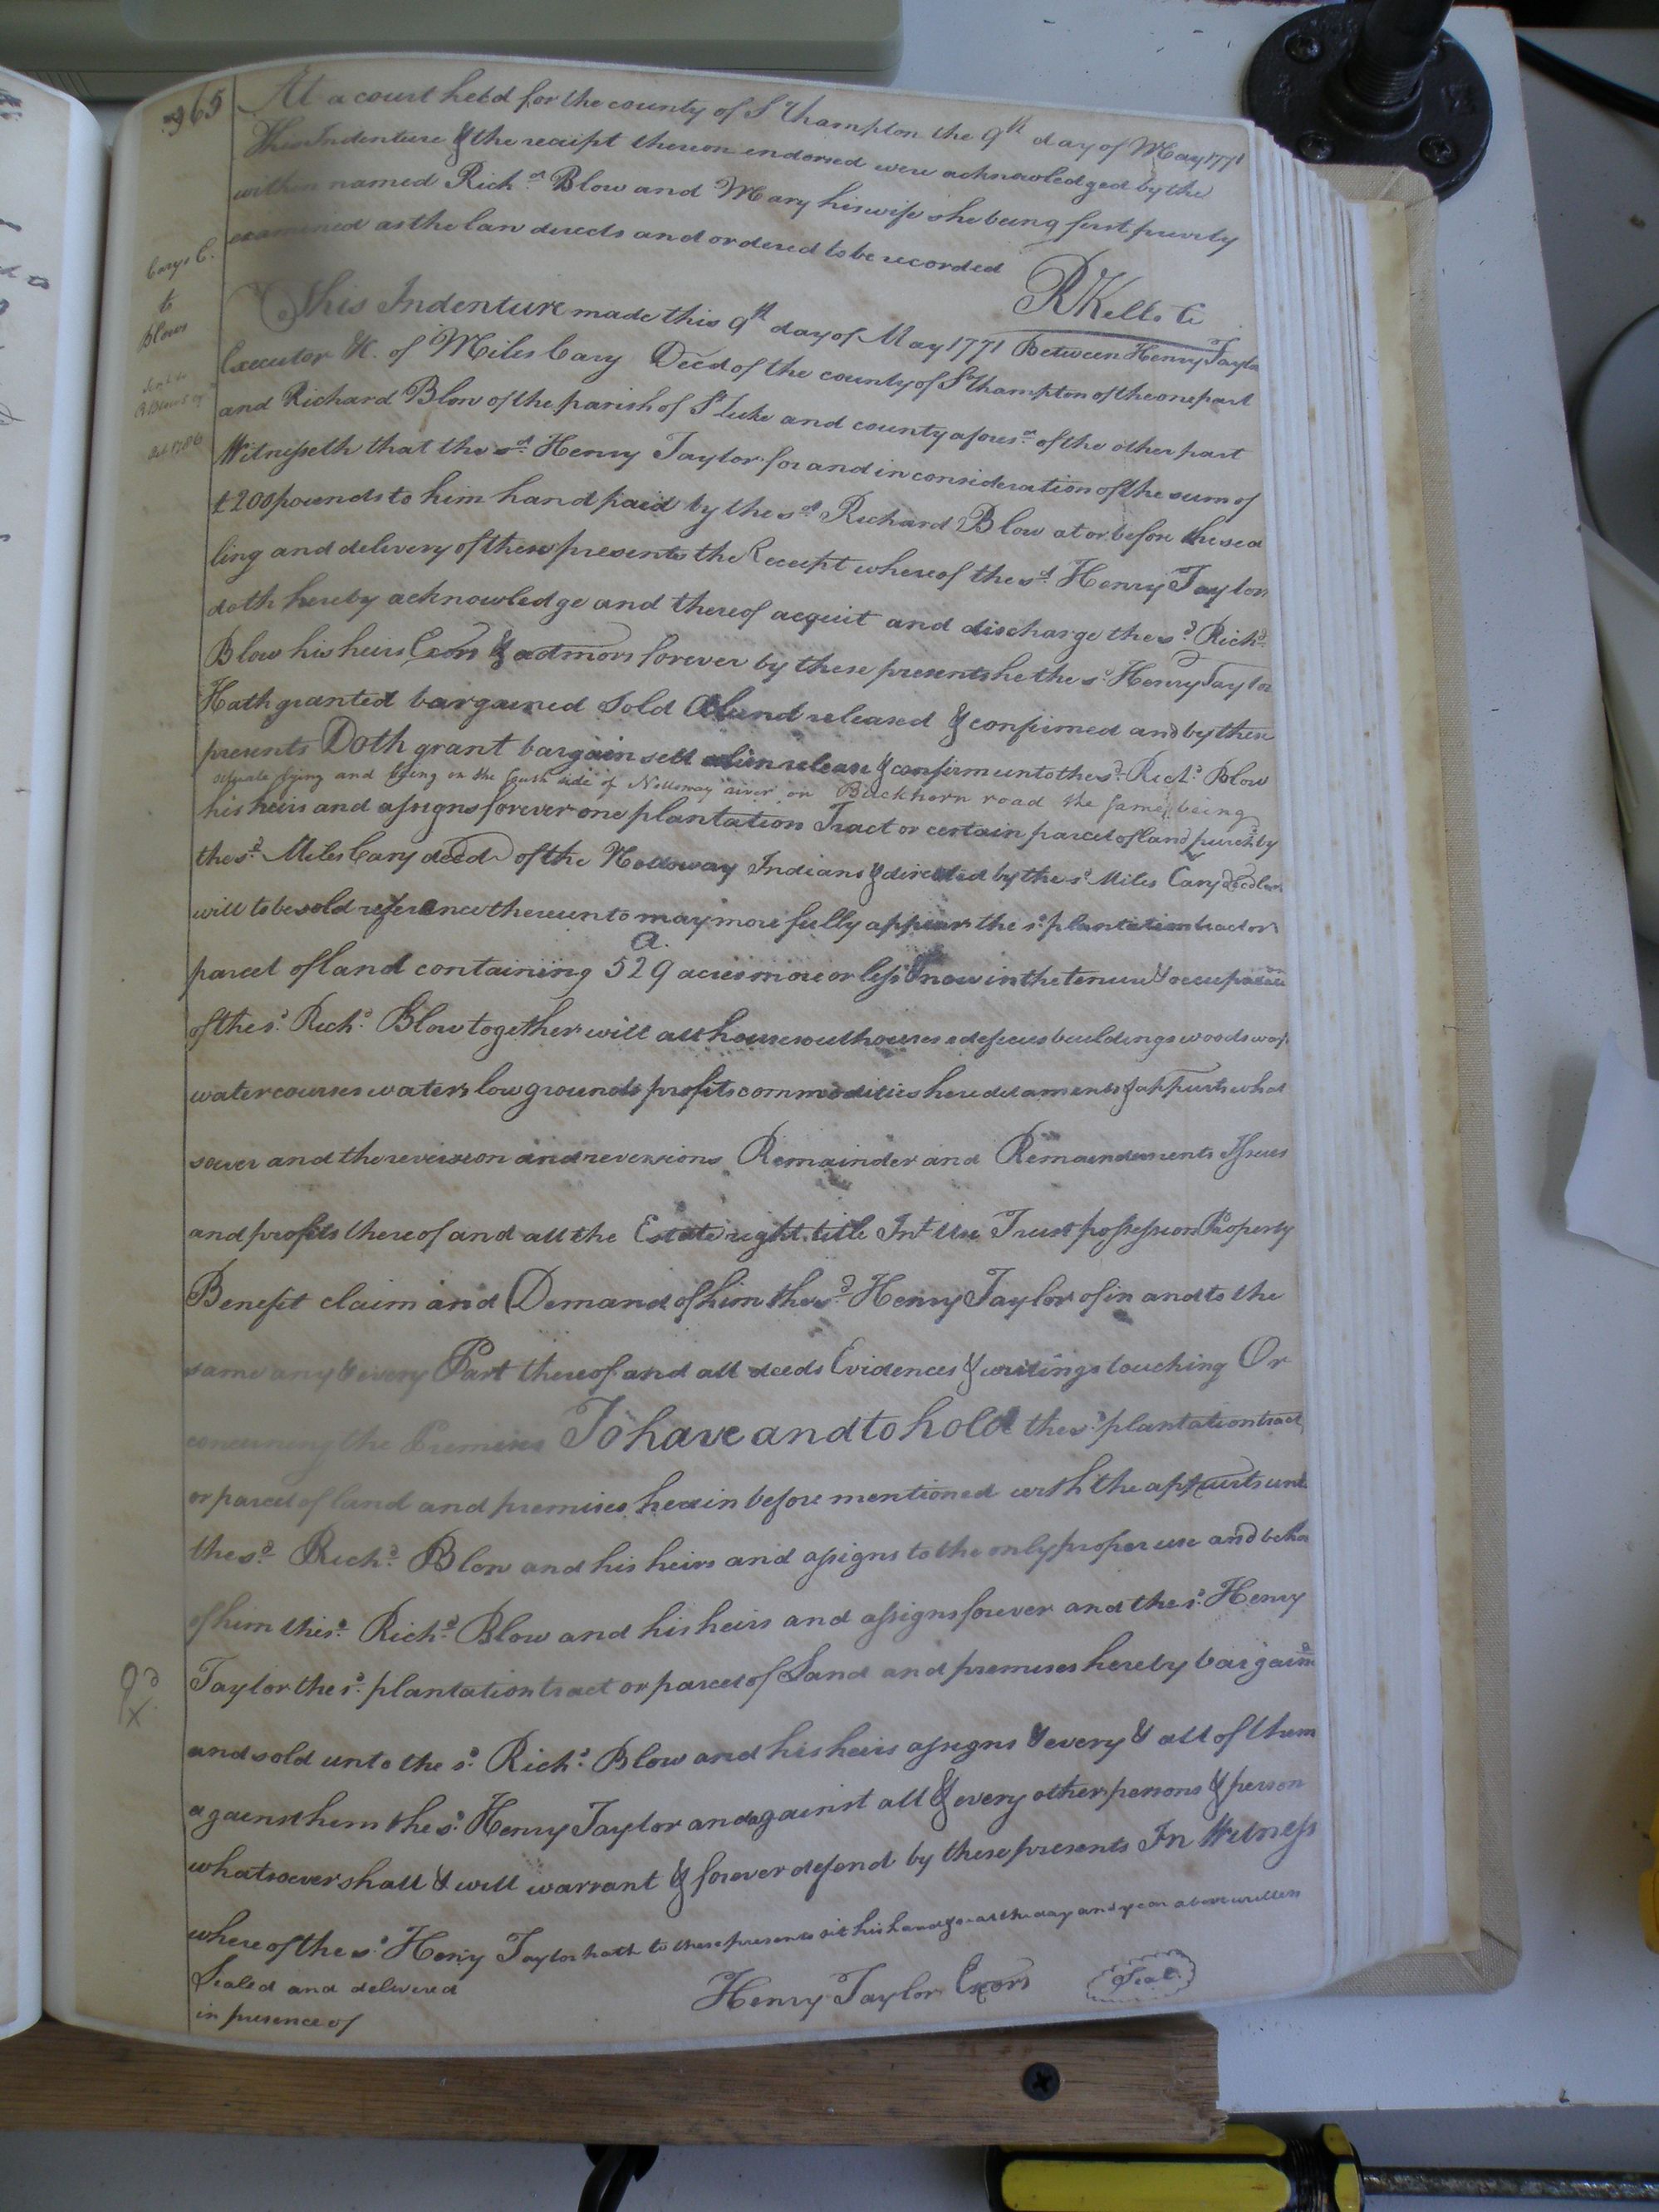 365
At a court held for the county of S'thampton the 9th day of May 1771
This Indenture & the receipt thereon endorsed were acknowledged by the
within named Richd. Blow and Mary his wife she being first privily
examined as the law directs and ordered to be recorded
RKello C
Carys E.
to
Blow
This Indenture made this 9th day of May 1771 Between Henry Taylor
Executor &c. of Miles Cary Decd of the county of S'thampton of the one part
and Richard Blow of the parish of St Luke and county aforesd. of the other part
Witnesseth that the sd. Henry Taylor for and in consideration of the sum of
£200 pounds to him hand paid by the sd Richard Blow at or before the sea
ling and delivery of these presents the Receipt whereof the sd. Henry Taylor
doth hereby acknowledge and thereof acquit and discharge the sd. Richd.
Blow his heirs Exors & admors forever by these presents he the sd. Henry Taylor
Hath granted bargained sold released & confirmed and by these
presents Doth grant bargain sell alien release & confirm unto the sd. Richd. Blow
situate lying and being on the South side of Nottoway river on Buckhorn road the same being
his heirs and assigns forever one plantation Tract or certain parcel of land purchd by
the sd. Miles Cary decd of the Nottoway Indians & directed by the sd. Miles Cary Decd
will to be sold reference thereunto may more fully appear the sd. plantation tract or
a.
parcel of land containing 529 acres more or less & now in the tenure & occupation
of the sd. Richd. Blow together will all houses outhouses edefices buildings woods ways
watercourses waters low grounds profits commodities hereditaments & appurts what
soever and the reversion and reversions Remainder and Remainders rents Issues
and profits thereof and all the Estate right title Int Use Trust possession Property
Benefit claim and Demand of him the sd. Henry Taylor of in and to the
same any & every Part thereof and all deeds Evidences & writings touching Or
concerning the Premises To have and to hold the sd. plantation tract
or parcel of land and premises herein before mentioned with the appurts unto
the sd. Richd. Blow and his heirs and assigns to the only proper use and behoo
of him the sd. Richd. Blow and his heirs and assigns forever and the sd. Henry
Taylor the sd. plantation tract or parcel of Land and premises hereby bargaind
and sold unto the sd. Richd. Blow and his heirs assigns & every & all of them
against him the sd. Henry Taylor and against all & every other persons & person
whatsoever shall & will warrant & forever defend by these presents In Witness
whereof the sd. Henry Taylor hath to these presents set his hand & seal the day and year above written
Sealed and delivered
in presence of
Henry Taylor Exors
Seal